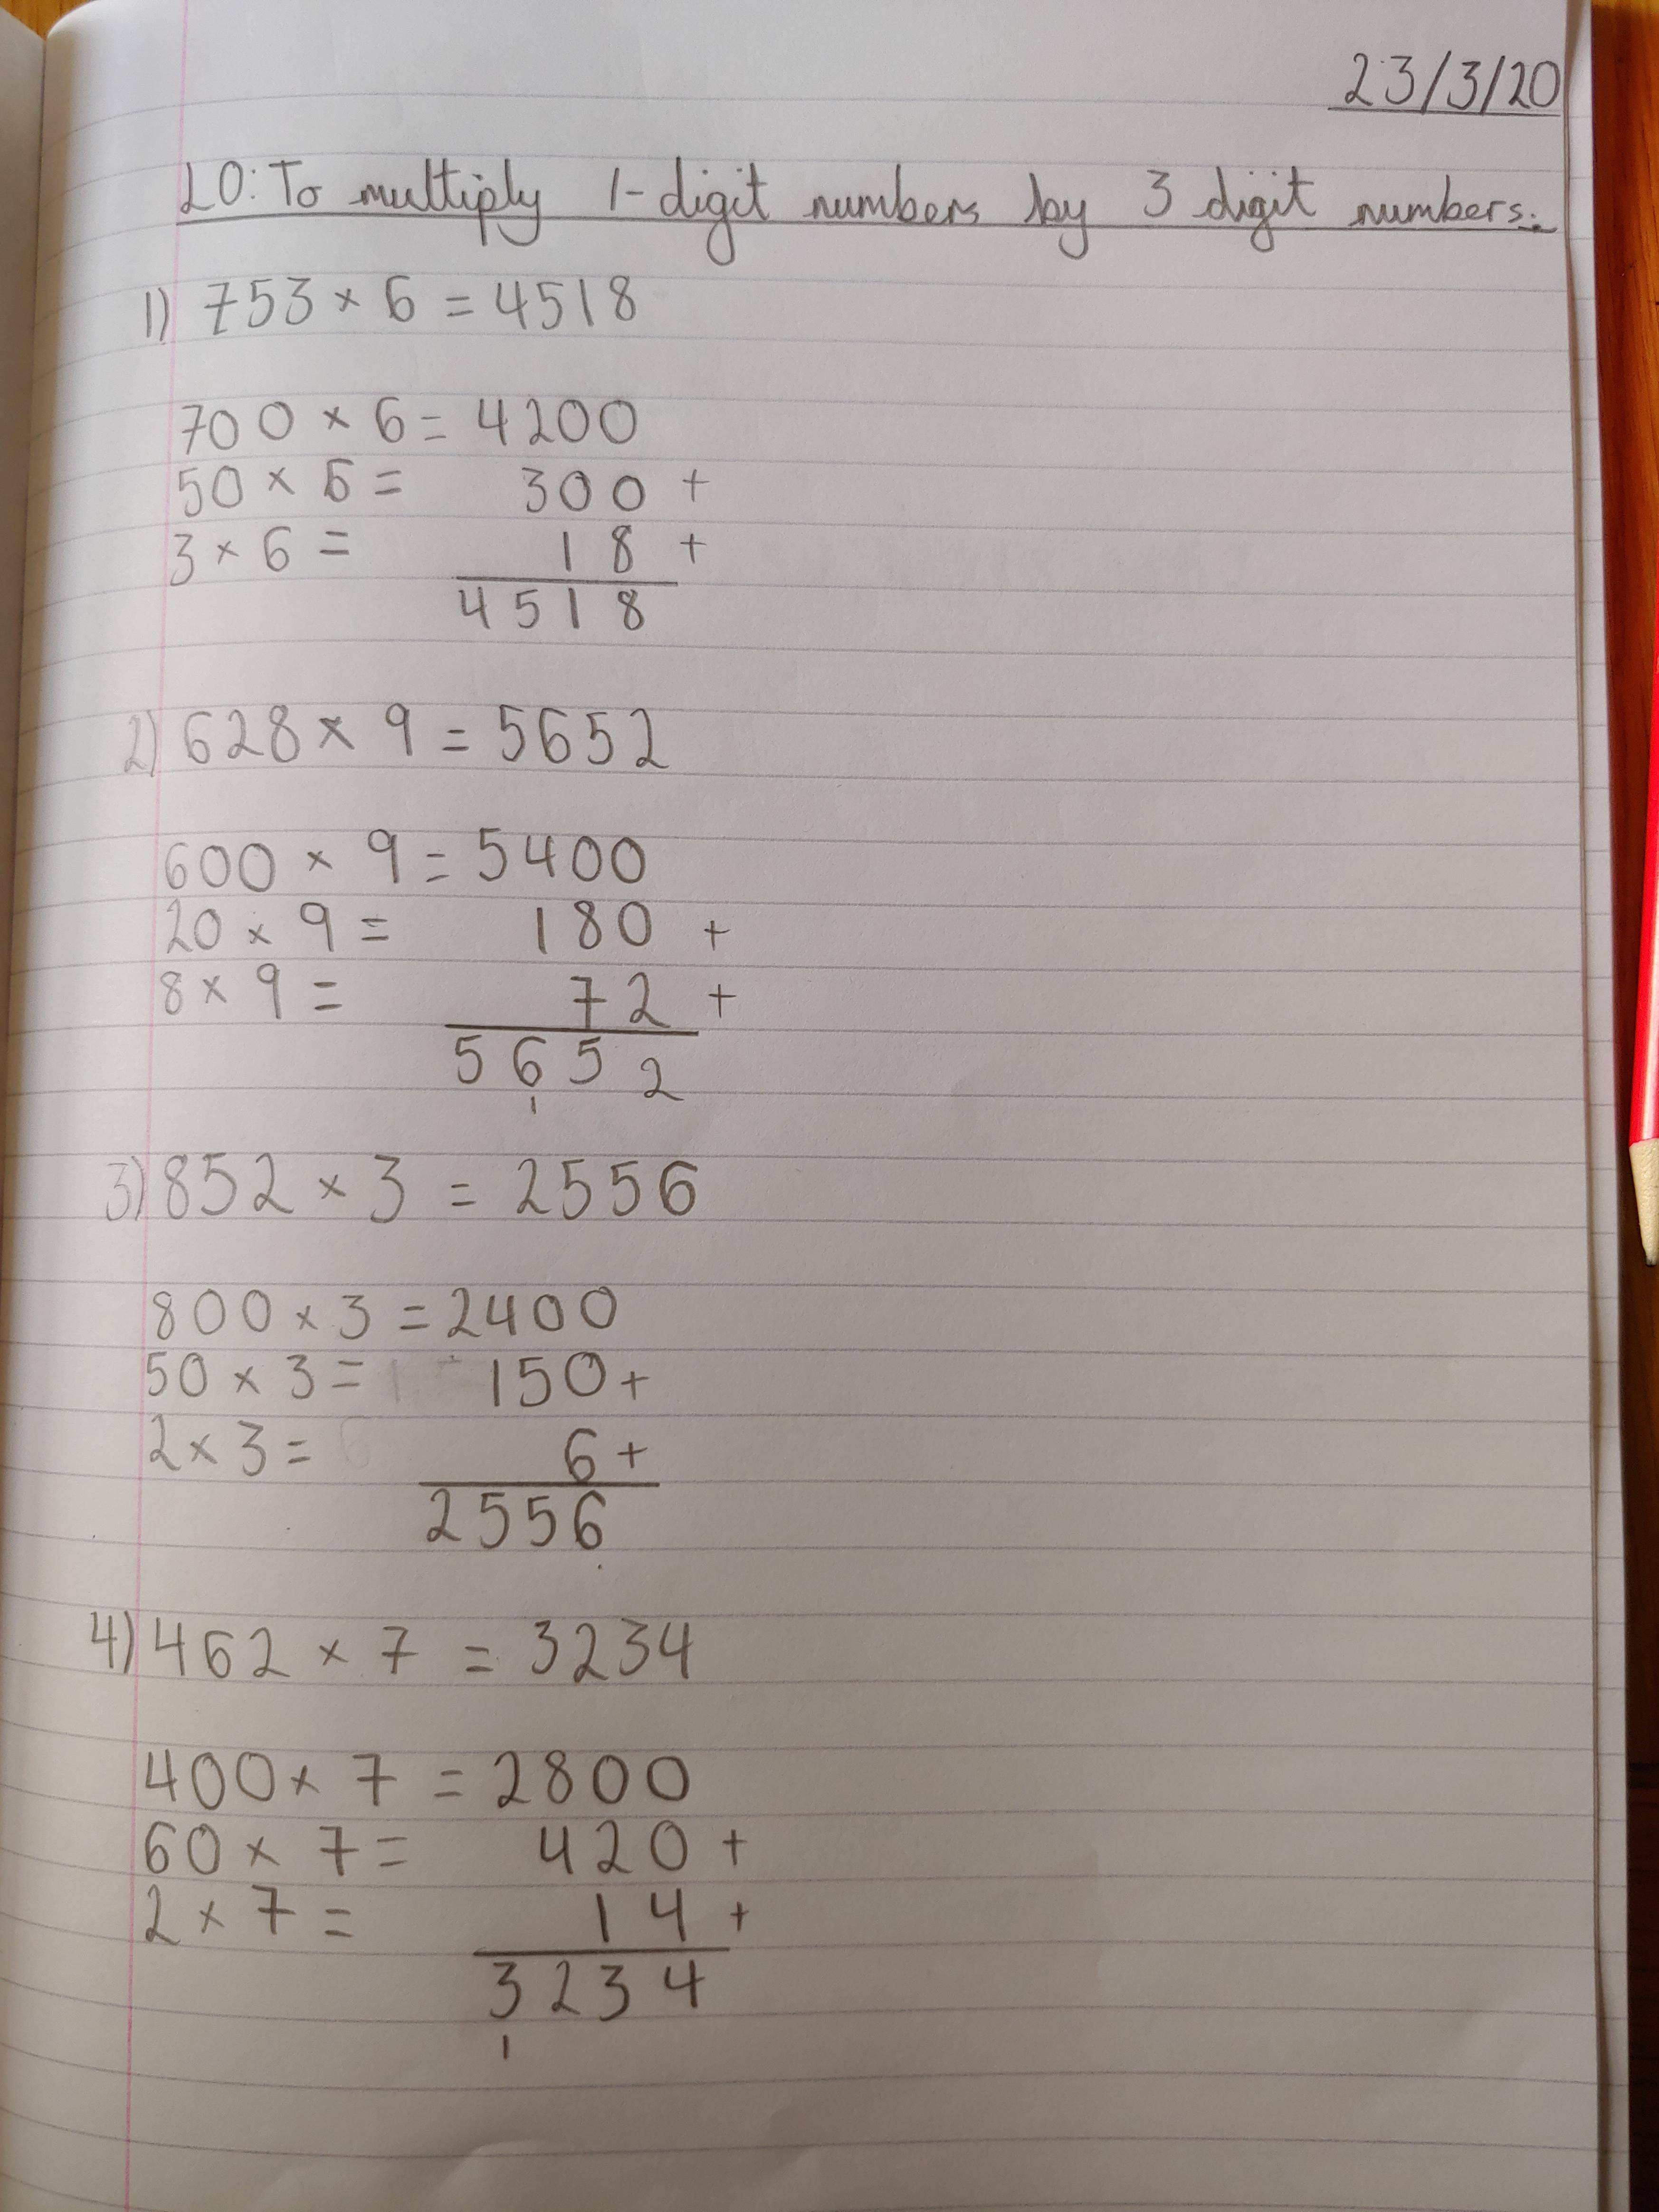 23/3/20
LO: To multiply 1-digit numbers by 3 digit numbers.
1) 753 × 6 = 4518
700 × 6 = 4200
50 × 6 = 300 +
3 × 6 = 18 +
4518
2) 628 × 9 = 5652
600 × 9 = 5400
20 × 9 = 180 +
8 × 9 = 72 +
5652
1
3) 852 × 3 = 2556
800 × 3 = 2400
50 × 3 = 150 +
2 × 3 = 6 +
2556
4) 462 × 7 = 3234
400 × 7 = 2800
60 × 7 = 420 +
2 × 7 = 14 +
3234
1